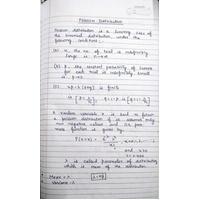 POISSON DISTRIBUTION
Poisson distribution is a limiting case of
the binomial distribution, under the
following conditions:-
(a) n, the no. of trial is indefinitely
large i.e. n→∞
(b) p, the constant probability of success
for each trial is indefinitely small
i.e. p→0
(c) np = λ (say) is finite
is said to follow
a poisson distribution if it assumes only
non negative values and its
function is given by
is called parameter of distribution
which is mean of the distribution
Mean = λ
Variance = λ